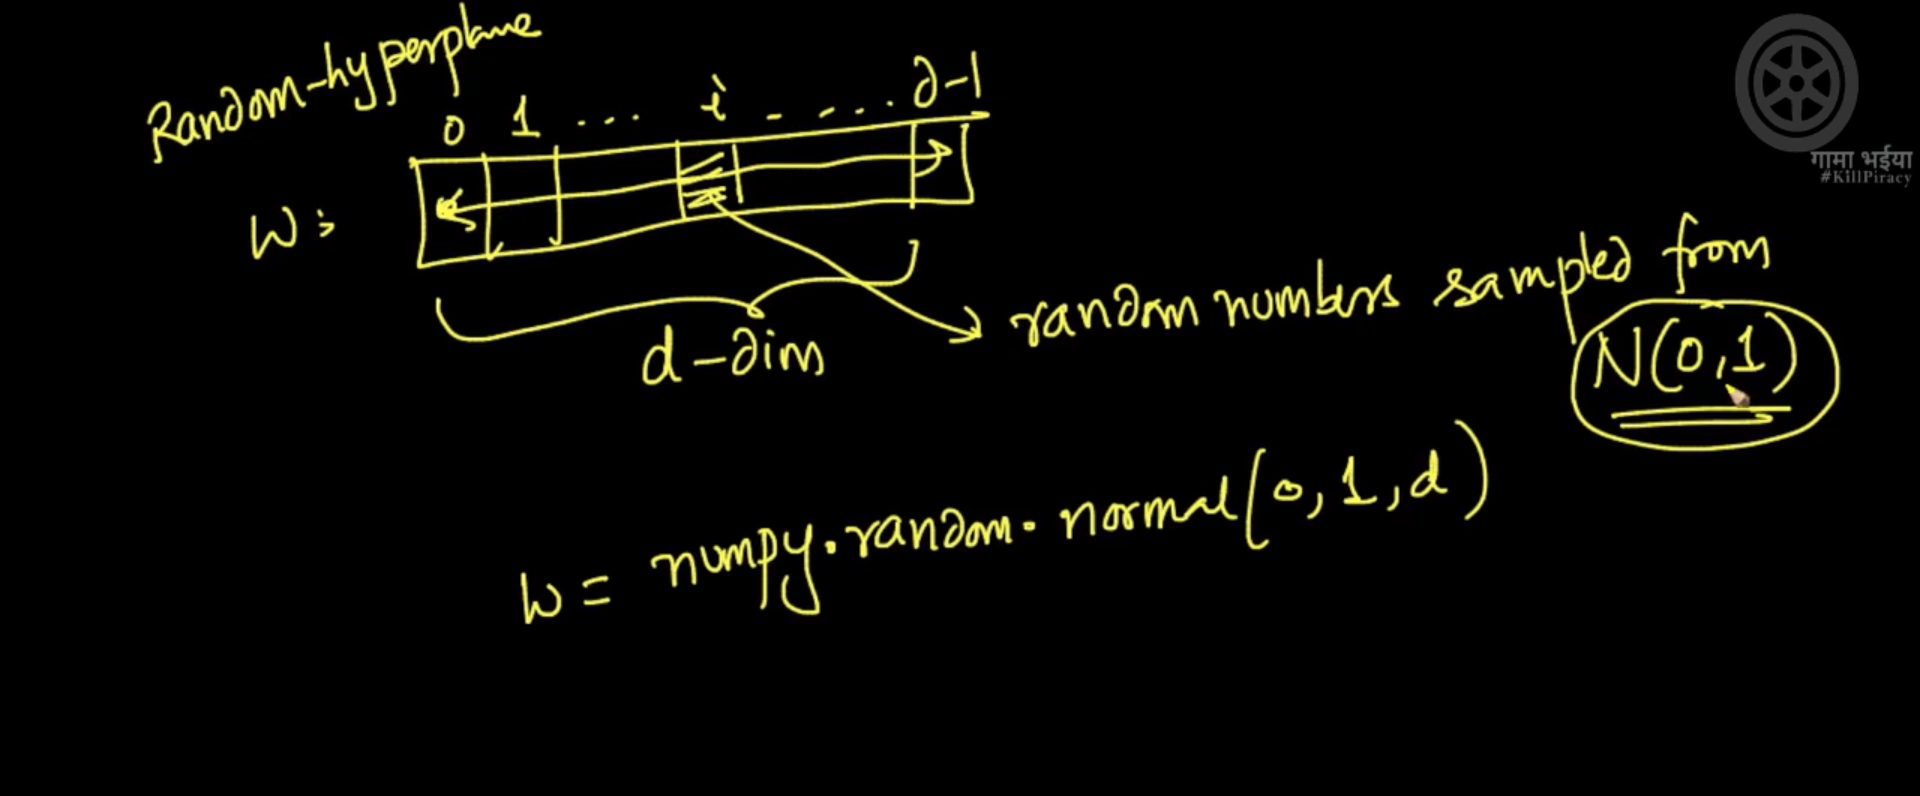 Random-hyperplane
0 1 ... i - - ... d-1
W:
d-dim
random numbers sampled from
N(0,1)
W = numpy.random.normal(0,1,d)
गामा भईया
#KillPiracy